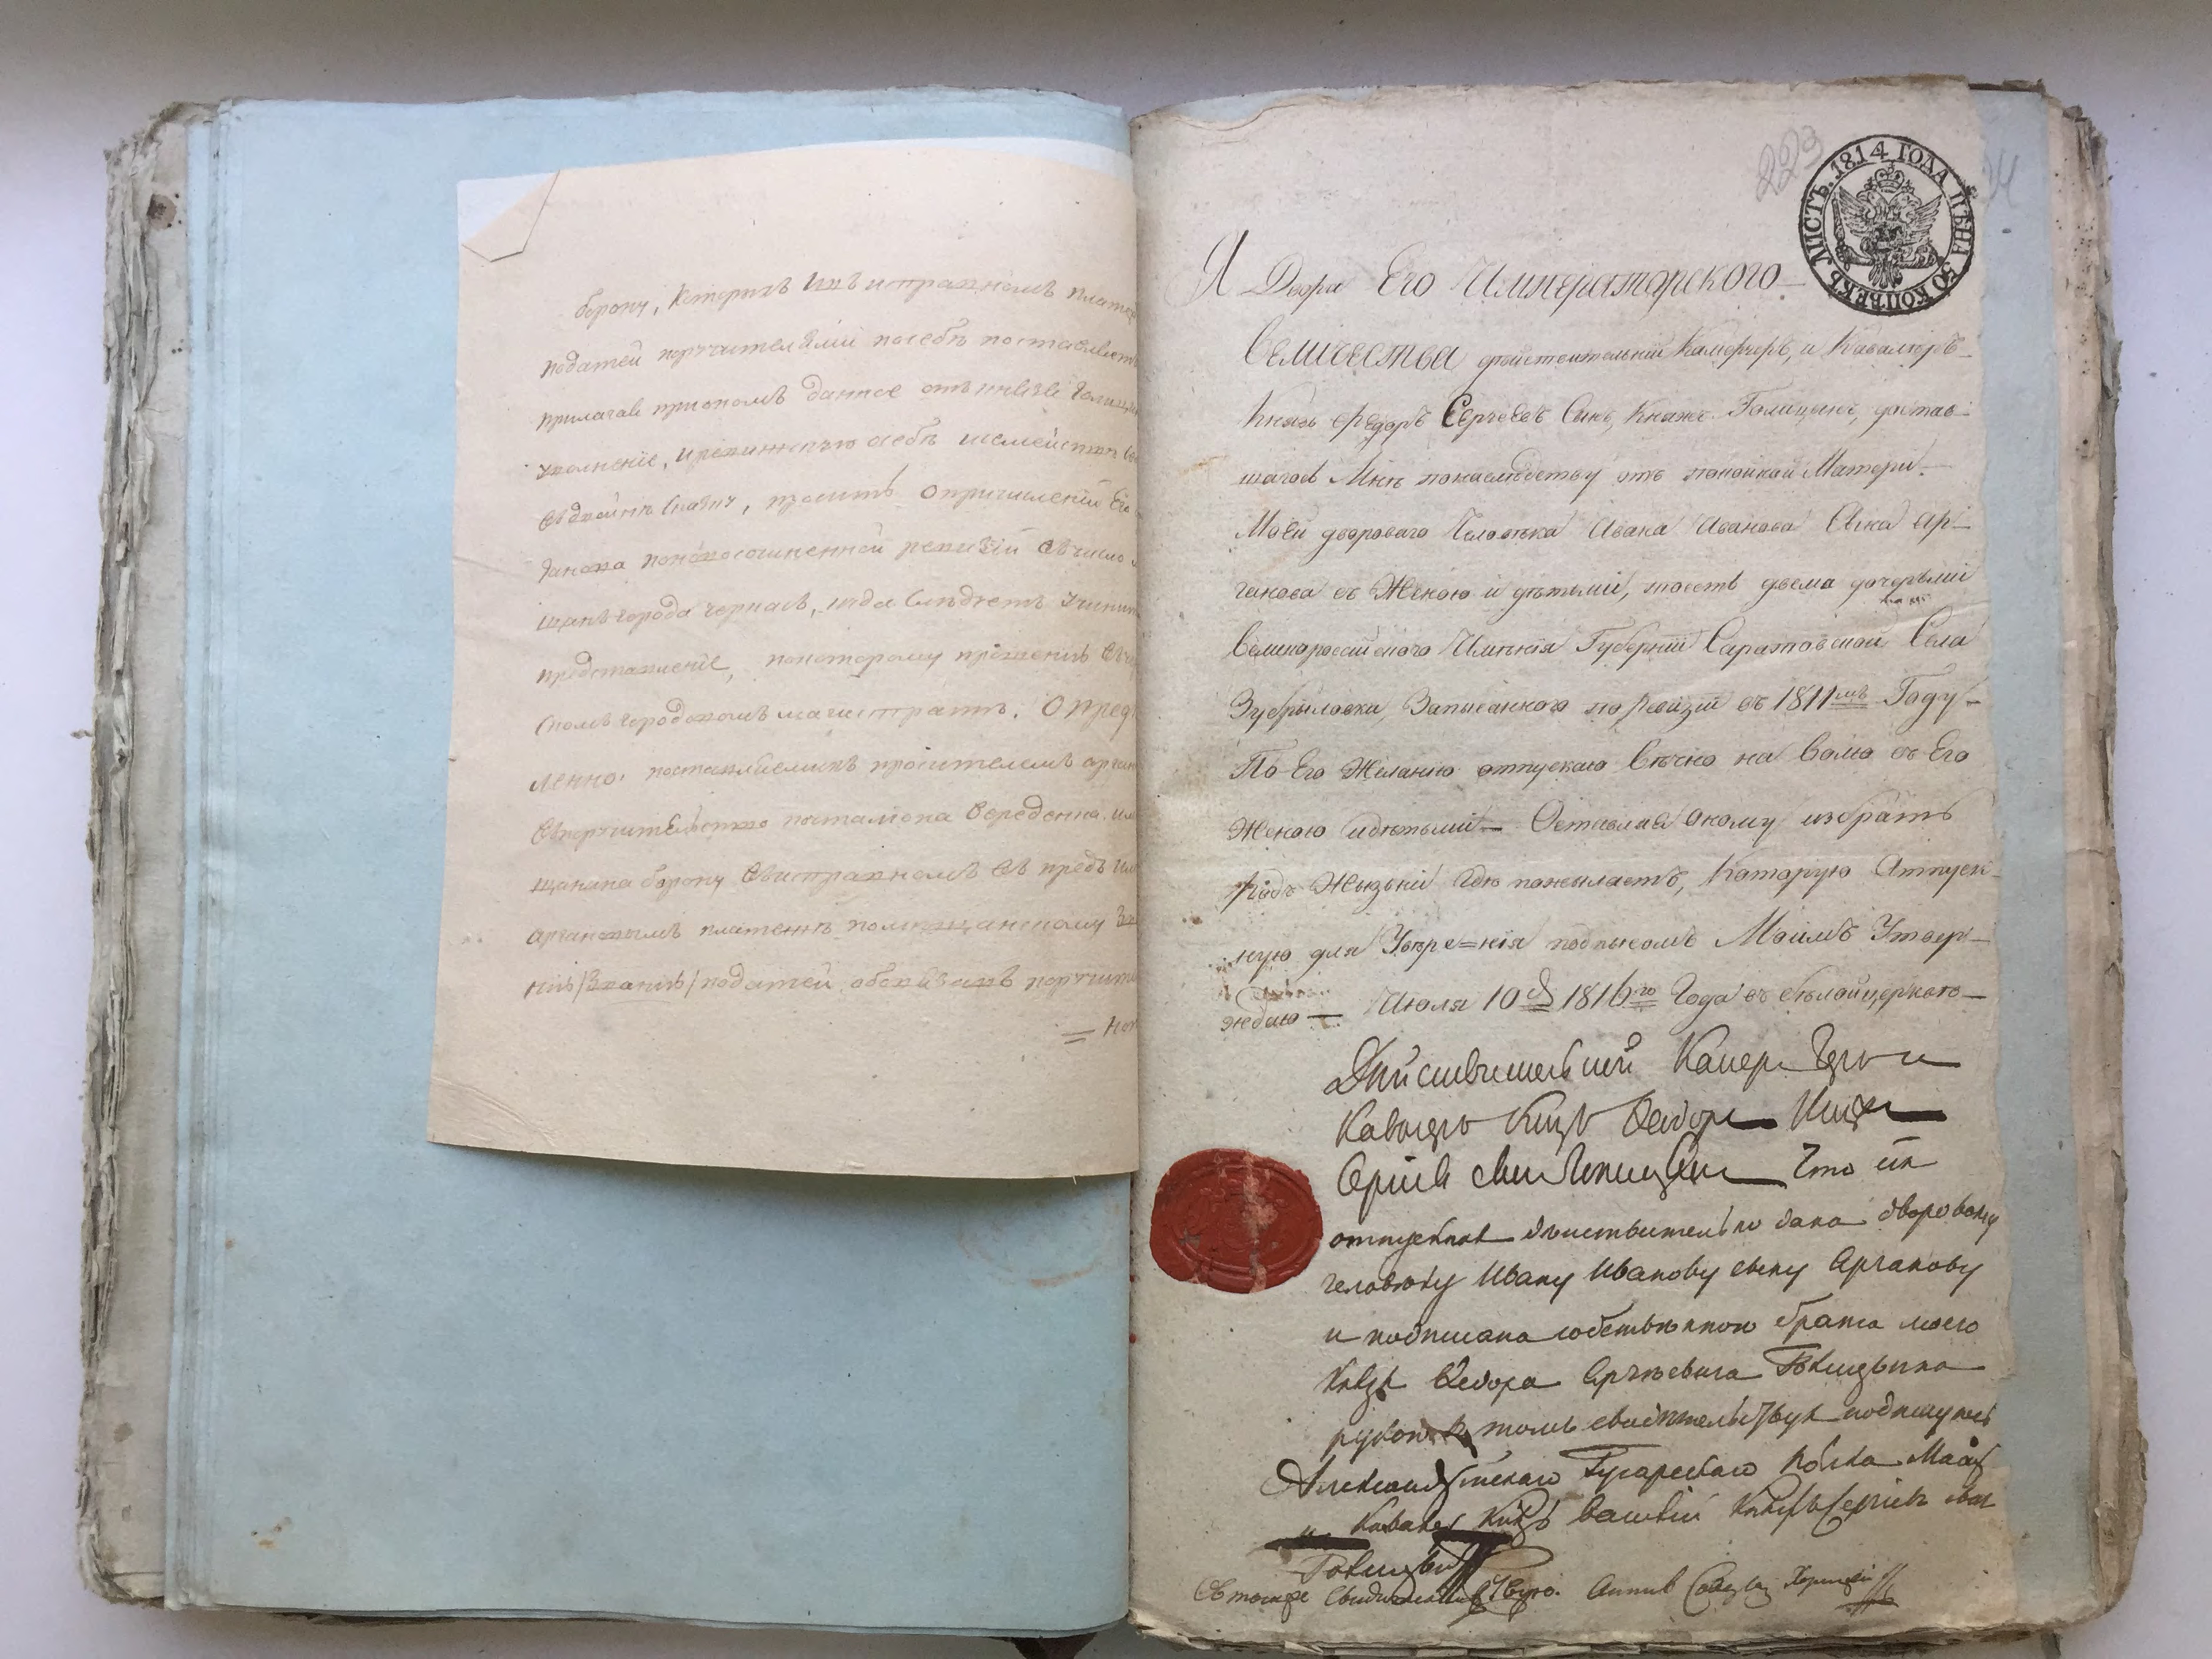 борону, которихъ ихъ исправномъ платеж
податей поручителями посебѣ поставляетъ
прилагая присиомъ данное отъ князя Голицы
уволнение, и ревижскую осебѣ исемейств
просить опричислении Его
Ганова поновосочиненной ревизіи въчисло
щанъ города Черкасъ, куда Слѣдуетъ учинит
представление, покоторому прошению
скомъ городовомъ магистратѣ. Опред
ленно: поставляемихъ просителемъ арган
поручительство
щанина борону въисправномъ
аргановымъ платежѣ помещанскому
нію/Званію/податей обовязавъ поручит
= Кон
223
ЛИСТЪ. 1814 ГОДА ЦѢНА 50 КОПѢЕКЪ
Я Двора Его Императорского
Величества действительний Камергеръ, и Кавалеръ
Князь Федоръ Сергѣевъ Сынъ, Князь Голицынъ, достав
шагося Мнѣ понаследству отъ покойной Матери
Моей двороваго Человѣка Ивана Иванова Сына Ар
ганова съ Женою и дѣтьми, тоесть двема дочерьми
Великоросійского Имѣнія Губерніи Саратовской Села
Зубрыловки, Записанного по ревизіи въ 1811мъ Году
По Его Желанію отпускаю вѣчно на волю съ Его
Женою идѣтьми Оставляя оному избрать
Родъ Жызьни Где пожелаетъ, Каторую Атпуск
ную для Увѣре=нія подписомъ Моимъ Утвер
ждаю Июля 10 д 1816го Года въ белойцеркве
Дѣйствительный Камергеръ и
Кавалеръ Князь Федоръ Князь
Сергіевъ сынъ Голицынъ Что сія
отпускная дѣиствительно дана дворовому
человѣку Ивану Иванову сыну Арганову
и подписана собственною брата моего
Князя Федора Сергѣевича Голицына
рукою въ томъ свидѣтельствуя подписуюсь
Александрійскаго Гусарскаго Полка Маіоръ
и Кавалеръ Князь Василій Князь Сергіевъ сынъ
Голицынъ
Въ томже Свидетельствую.